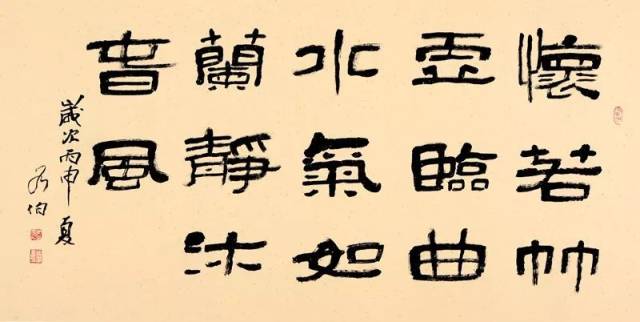 懷若竹
虛臨曲
水氣如
蘭靜沐
春風
歲次丙申夏
伯